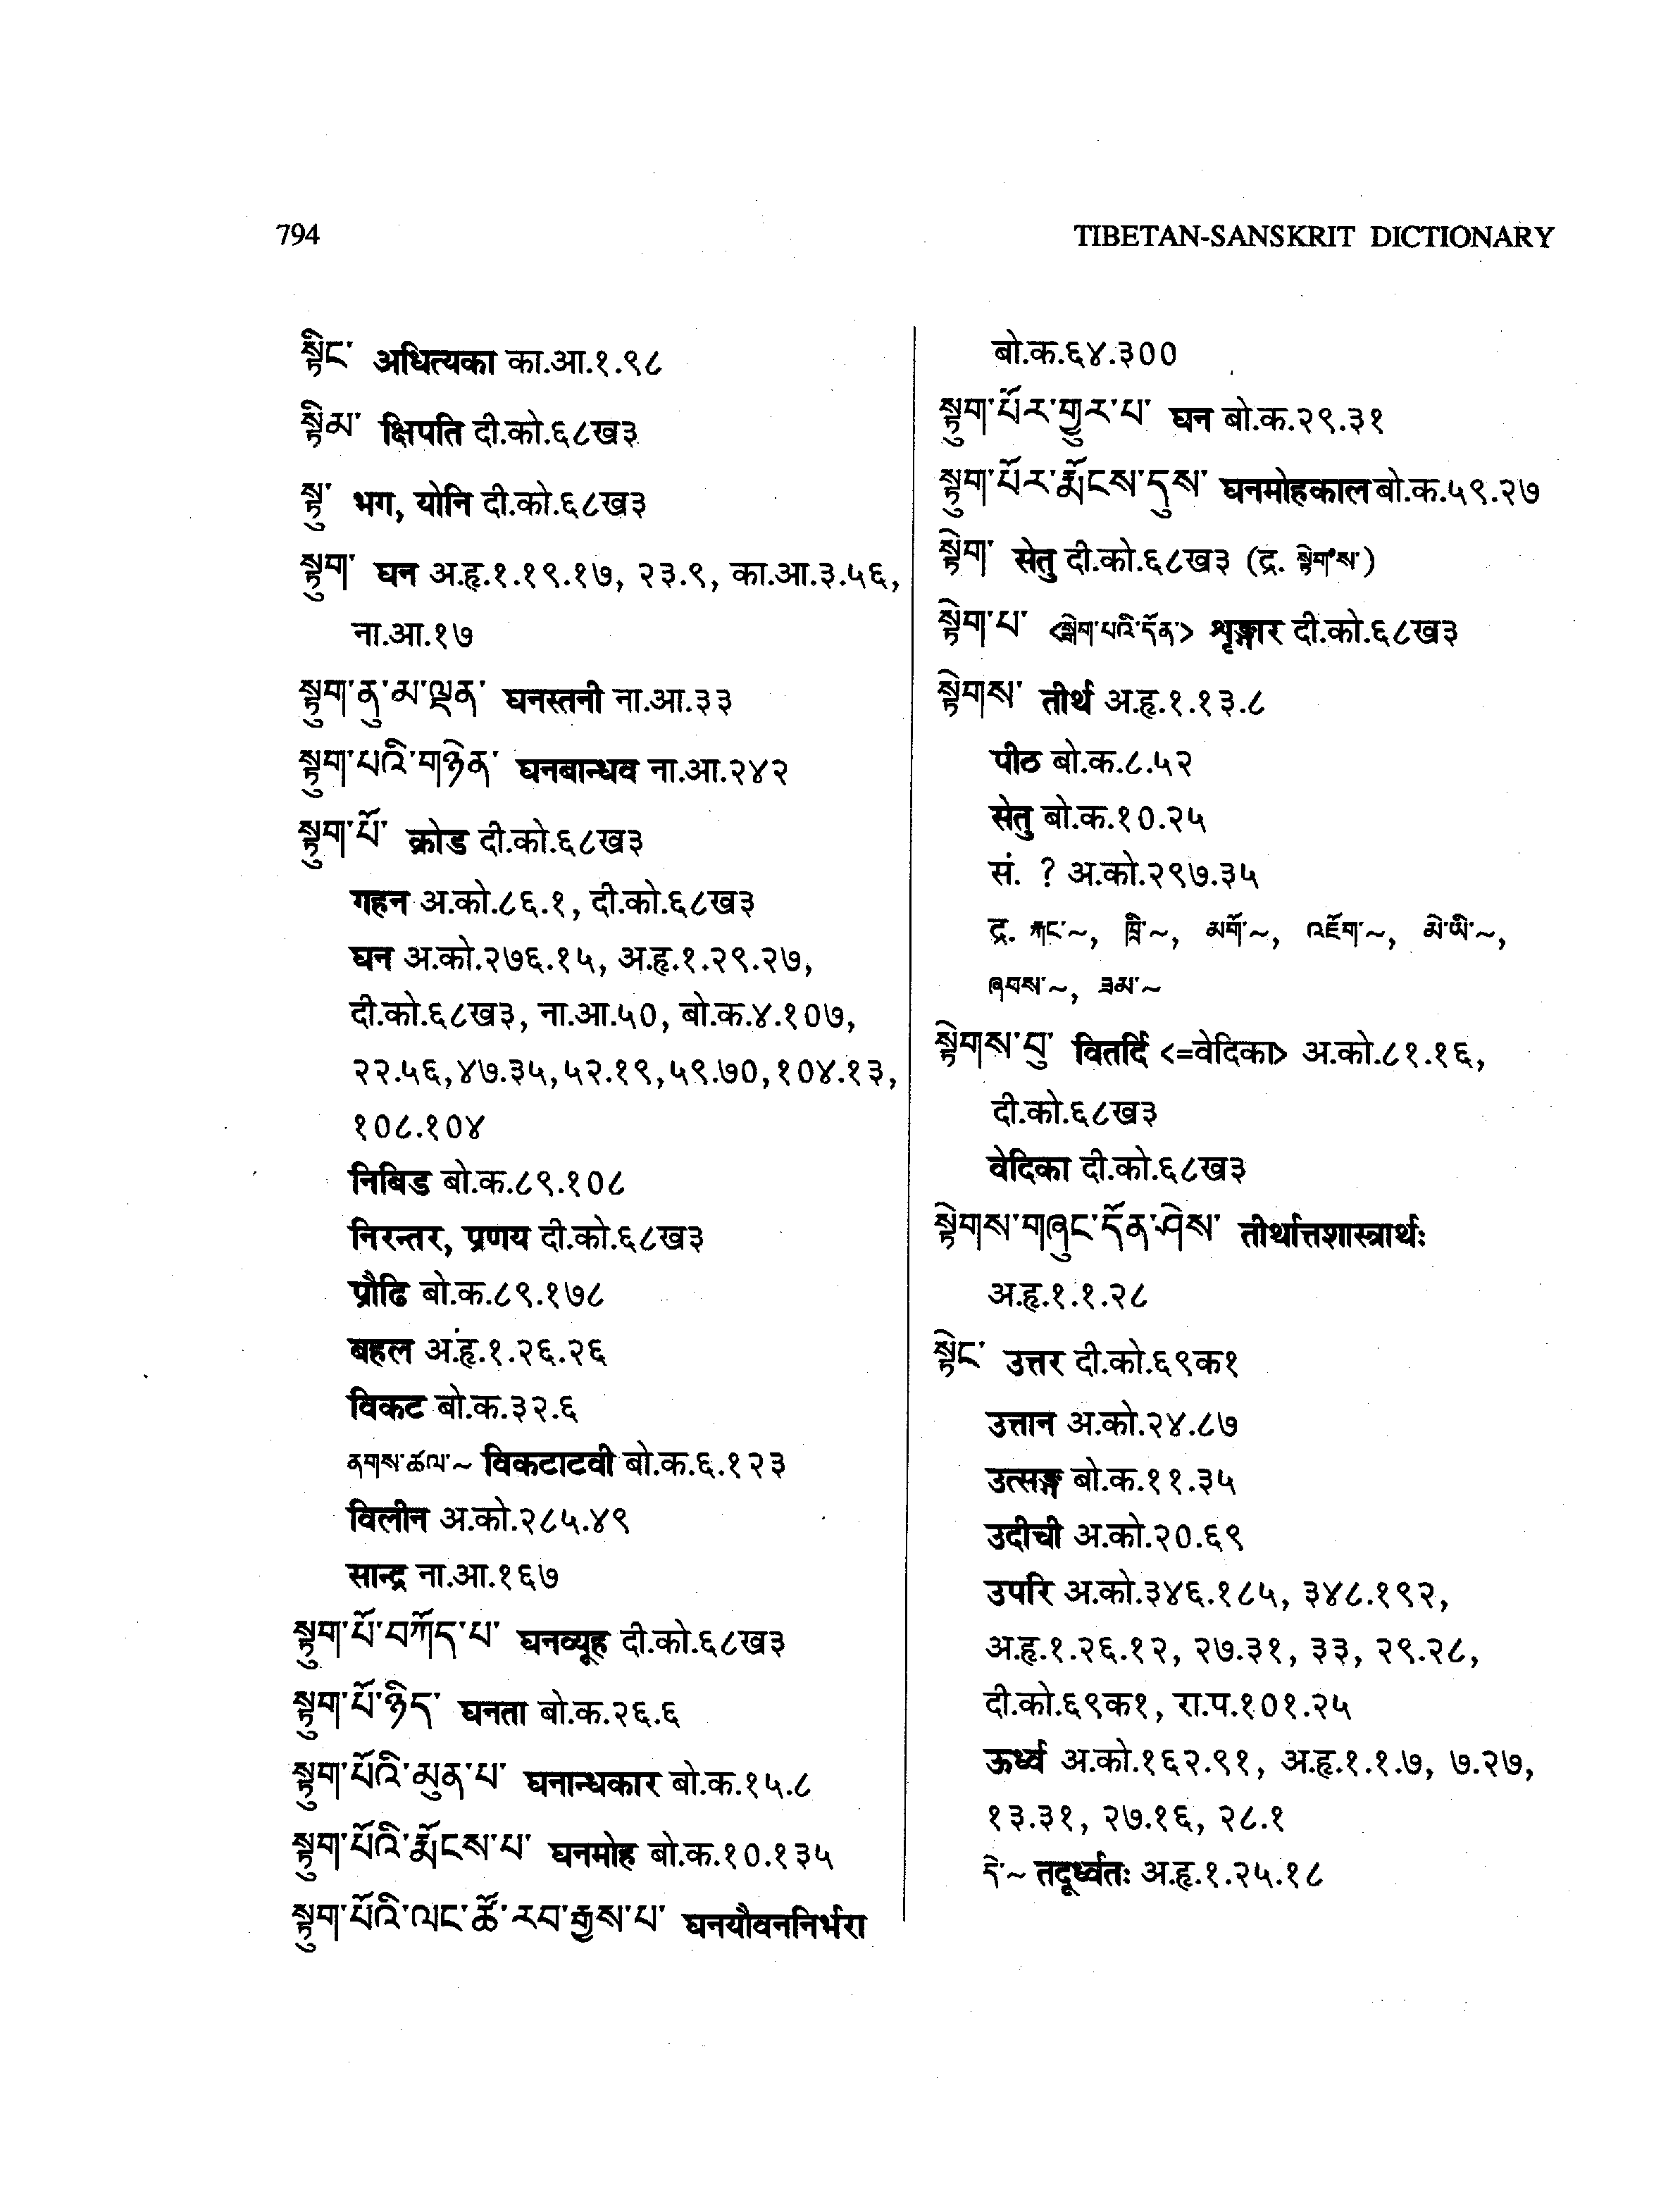 794
TIBETAN-SANSKRIT DICTIONARY
སྟིང་ अधित्यका का.आ.१.९८
སྟིམ་ क्षिपति दी.को.६८ख३
སྟུ་ भग, योनि दी.को.६८ख३
སྟུག་ घन अ.हृ.१.१९.१७, २३.९, का.आ.३.५६,
ना.आ.१७
སྟུག་ནུ་མ་ལྡན་ घनस्तनी ना.आ.३३
སྟུག་པའི་གཉེན་ घनबान्धव ना.आ.२४२
སྟུག་པོ་ क्रोड दी.को.६८ख३
गहन अ.को.८६.१, दी.को.६८ख३
घन अ.को.२७६.१५, अ.हृ.१.२९.२७,
दी.को.६८ख३, ना.आ.५०, बो.क.४.१०७,
२२.५६,४७.३५,५२.१९,५९.७०,१०४.१३,
१०८.१०४
निबिड बो.क.८९.१०८
निरन्तर, प्रणय दी.को.६८ख३
प्रौढि बो.क.८९.१७८
बहल अ.हृ.१.२६.२६
विकट बो.क.३२.६
ནགས་ཚལ་~ विकटाटवी बो.क.६.१२३
विलीन अ.को.२८५.४९
सान्द्र ना.आ.१६७
སྟུག་པོ་བཀོད་པ་ घनव्यूह दी.को.६८ख३
སྟུག་པོ་ཉིད་ घनता बो.क.२६.६
སྟུག་པོའི་མུན་པ་ घनान्धकार बो.क.१५.८
སྟུག་པོའི་རྨོངས་པ་ घनमोह बो.क.१०.१३५
སྟུག་པོའི་ལང་ཚོ་རབ་རྒྱས་པ་ घनयौवननिर्भरा
बो.क.६४.३००
སྟུག་པོར་གྱུར་པ་ घन बो.क.२९.३१
སྟུག་པོར་རྨོངས་དུས་ घनमोहकाल बो.क.५९.२७
སྟེག་ सेतु दी.को.६८ख३ (द्र. སྟེགས་)
སྟེག་པ་ <སྒེག་པའི་དོན་> शृङ्गार दी.को.६८ख३
སྟེགས་ तीर्थ अ.हृ.१.१३.८
पीठ बो.क.८.५२
सेतु बो.क.१०.२५
सं. ? अ.को.२९७.३५
द्र. རྐང་~, ཁྲི་~, མགོ་~, འཇོག་~, མེ་ཡི་~,
ཞབས་~, ཟམ་~
སྟེགས་བུ་ वितर्दि <=वेदिका> अ.को.८१.१६,
दी.को.६८ख३
वेदिका दी.को.६८ख३
སྟེགས་གཞུང་དོན་ཤེས་ तीर्थात्तशास्त्रार्थः
अ.हृ.१.१.२८
སྟེང་ उत्तर दी.को.६९क१
उत्तान अ.को.२४.८७
उत्सङ्ग बो.क.११.३५
उदीची अ.को.२०.६९
उपरि अ.को.३४६.१८५, ३४८.१९२,
अ.हृ.१.२६.१२, २७.३१, ३३, २९.२८,
दी.को.६९क१, रा.प.१०१.२५
ऊर्ध्व अ.को.१६२.९१, अ.हृ.१.१.७, ७.२७,
१३.३१, २७.१६, २८.१
དེ་~ तदूर्ध्वतः अ.हृ.१.२५.१८